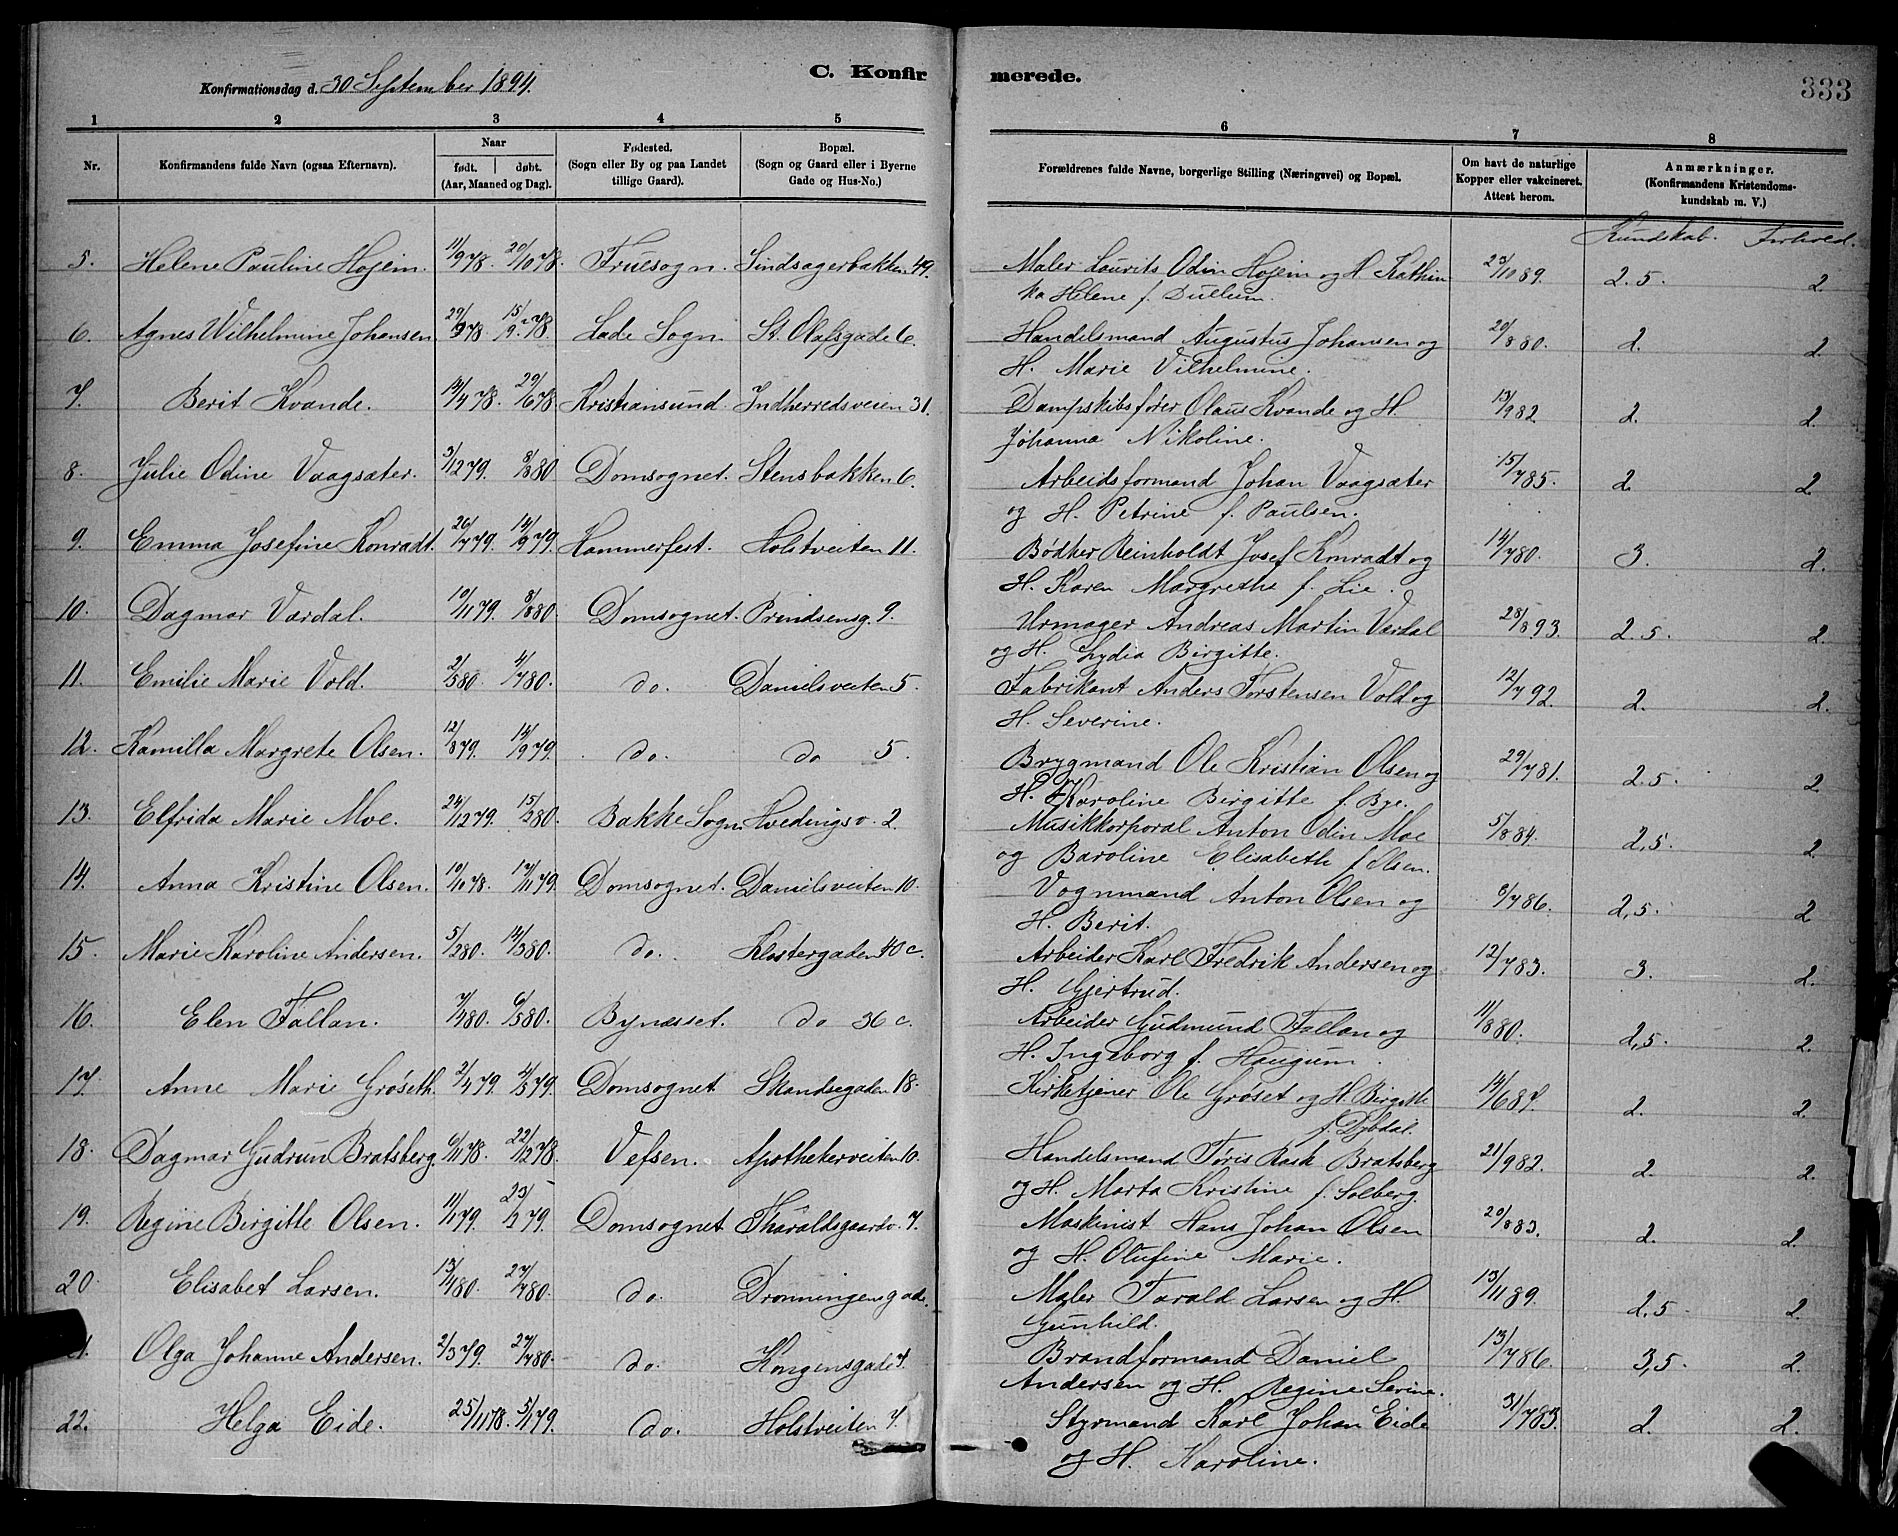 Konfirmationsdag d. 30 September 1894.
C. Konfirmerede.
333
1 2 3 4 5 6 7 8
Nr.
Konfirmandens fulde Navn (ogsaa Efternavn).
Naar
født. døbt.
(Aar, Maaned og Dag).
Fødested.
(Sogn eller By og paa Landet
tillige Gaard).
Bopæl.
(Sogn og Gaard eller i Byerne
Gade og Hus-No.)
Forældrenes fulde Navne, borgerlige Stilling (Næringsvei) og Bopæl.
Om havt de naturlige
Kopper eller vakcineret.
Attest herom.
Anmærkninger.
(Konfirmandens Kristendoms-
kundskab m. V.)
Kundskab. Forhold.
5. Helene Pauline Hojem. 11/9 78. 20/10 78. Fruesogn. Sindsagerbakken 49. Maler Laurits Odin Hojem og H. Kathin 23/10 89. 2.5. 2
ka Helene f. Dullum.
6. Agnes Wilhelmine Johansen 78. 15/9 78. Lade Sogn. St. Olafsgade 6. Handelsmand Augustus Johansen og 20/8 80. 2. 2
H. Marie Vilhelmine.
7. Berit Kvande. 14/4 78. 29/6 78. Kristiansund. Indherredsveien 31. Dampskibsfører Olaus Kvande og H. 13/9 82. 2. 2
Johanna Nikoline.
8. Julie Odine Vaagsæter. 3/12 79. 8/8 80. Domsognet. Stensbakken 6. Arbeidsformand Johan Vaagsæter 15/7 85. 2. 2
og H. Petrine f. Paulsen.
9. Emma Josefine Konradt. 20/7 79. 14/9 79. Hammerfest. Holstveiten 11. Bødker Reinholdt Josef Konradt og 14/7 80. 3. 2.
H. Karen Margrethe f. Lie.
10. Dagmar Værdal. 10/11 79. 8/8 80. Domsognet. Prindsensg. 9. Urmager Andreas Martin Værdal 28/8 93. 2.5. 2.
og H. Lydia Birgitte.
11. Emilie Marie Vold. 2/5 80. 4/7 80. do. Danielsveiten 5. Fabrikant Anders Torstensen Vold og 12/7 92. 2. 2.
H. Severine.
12. Kamilla Margrete Olsen. 12/8 79. 14/9 79. do. do 5. Brygmand Ole Kristian Olsen og 29/7 81. 2.5. 2
H. Karoline Birgitte f. Bye.
13. Elfrida Marie Moe. 24/12 79. 15/2 80. Bakke Sogn Hvedingsv. 2. Musikkorporal Anton Odin Moe 5/8 84. 2,5. 2
og Baroline Elisabeth f. Olsen.
14. Anna Kristine Olsen. 10/10 78. 12/1 79. Domsognet. Danielsveiten 10. Vognmand Anton Olsen og 8/7 86. 2,5. 2
H. Berit.
15. Marie Karoline Andersen. 5/2 80. 14/3 80. do. Klostergaden 40 c. Arbeider Karl Fredrik Andersen og 12/7 83. 3. 2.
H. Gjertrud.
16. Elen Fallan. 7/4 80. 6/5 80. Bynæsset. do 36 c. Arbeider Gudmund Fallan og 11/8 80. 2,5. 2.
H. Ingeborg f. Haugum.
17. Anne Marie Grøseth. 2/4 79. 4/5 79. Domsognet Skandsegaden 18. Kirketjener Ole Grøset og H. Birgitte 14/6 87. 2. 2.
f. Dybdal.
18. Dagmar Gudrun Bratsberg. 6/11 78. 22/12 78. Vefsen. Apothekerveiten 10. Handelsmand Tøris Rask Bratsberg 21/9 82. 2. 2.
og H. Marta Kristine f. Solberg.
19. Regine Birgitte Olsen. 11/1 79. 23/3 79. Domsognet Tharaldsgaardv. 7. Maskinist Hans Johan Olsen 20/8 83. 2. 2.
og H. Olufine Marie.
20. Elisabet Larsen. 13/1 80. 27/7 80. do. Dronningensgade. Maler Tarald Larsen og H. 13/11 89. 2,5. 2.
Gunhild.
21. Olga Johanne Andersen. 2/3 79. 27/7 80. do. Kongensgade 7. Brandformand Daniel 13/7 86. 3,5. 2.
Andersen og H. Regine Serine.
22. Helga Eide. 25/11 78. 5/1 79. do. Holstveiten 7. Styrmand Karl Johan Eide 31/7 83. 2. 2.
og H. Karoline.